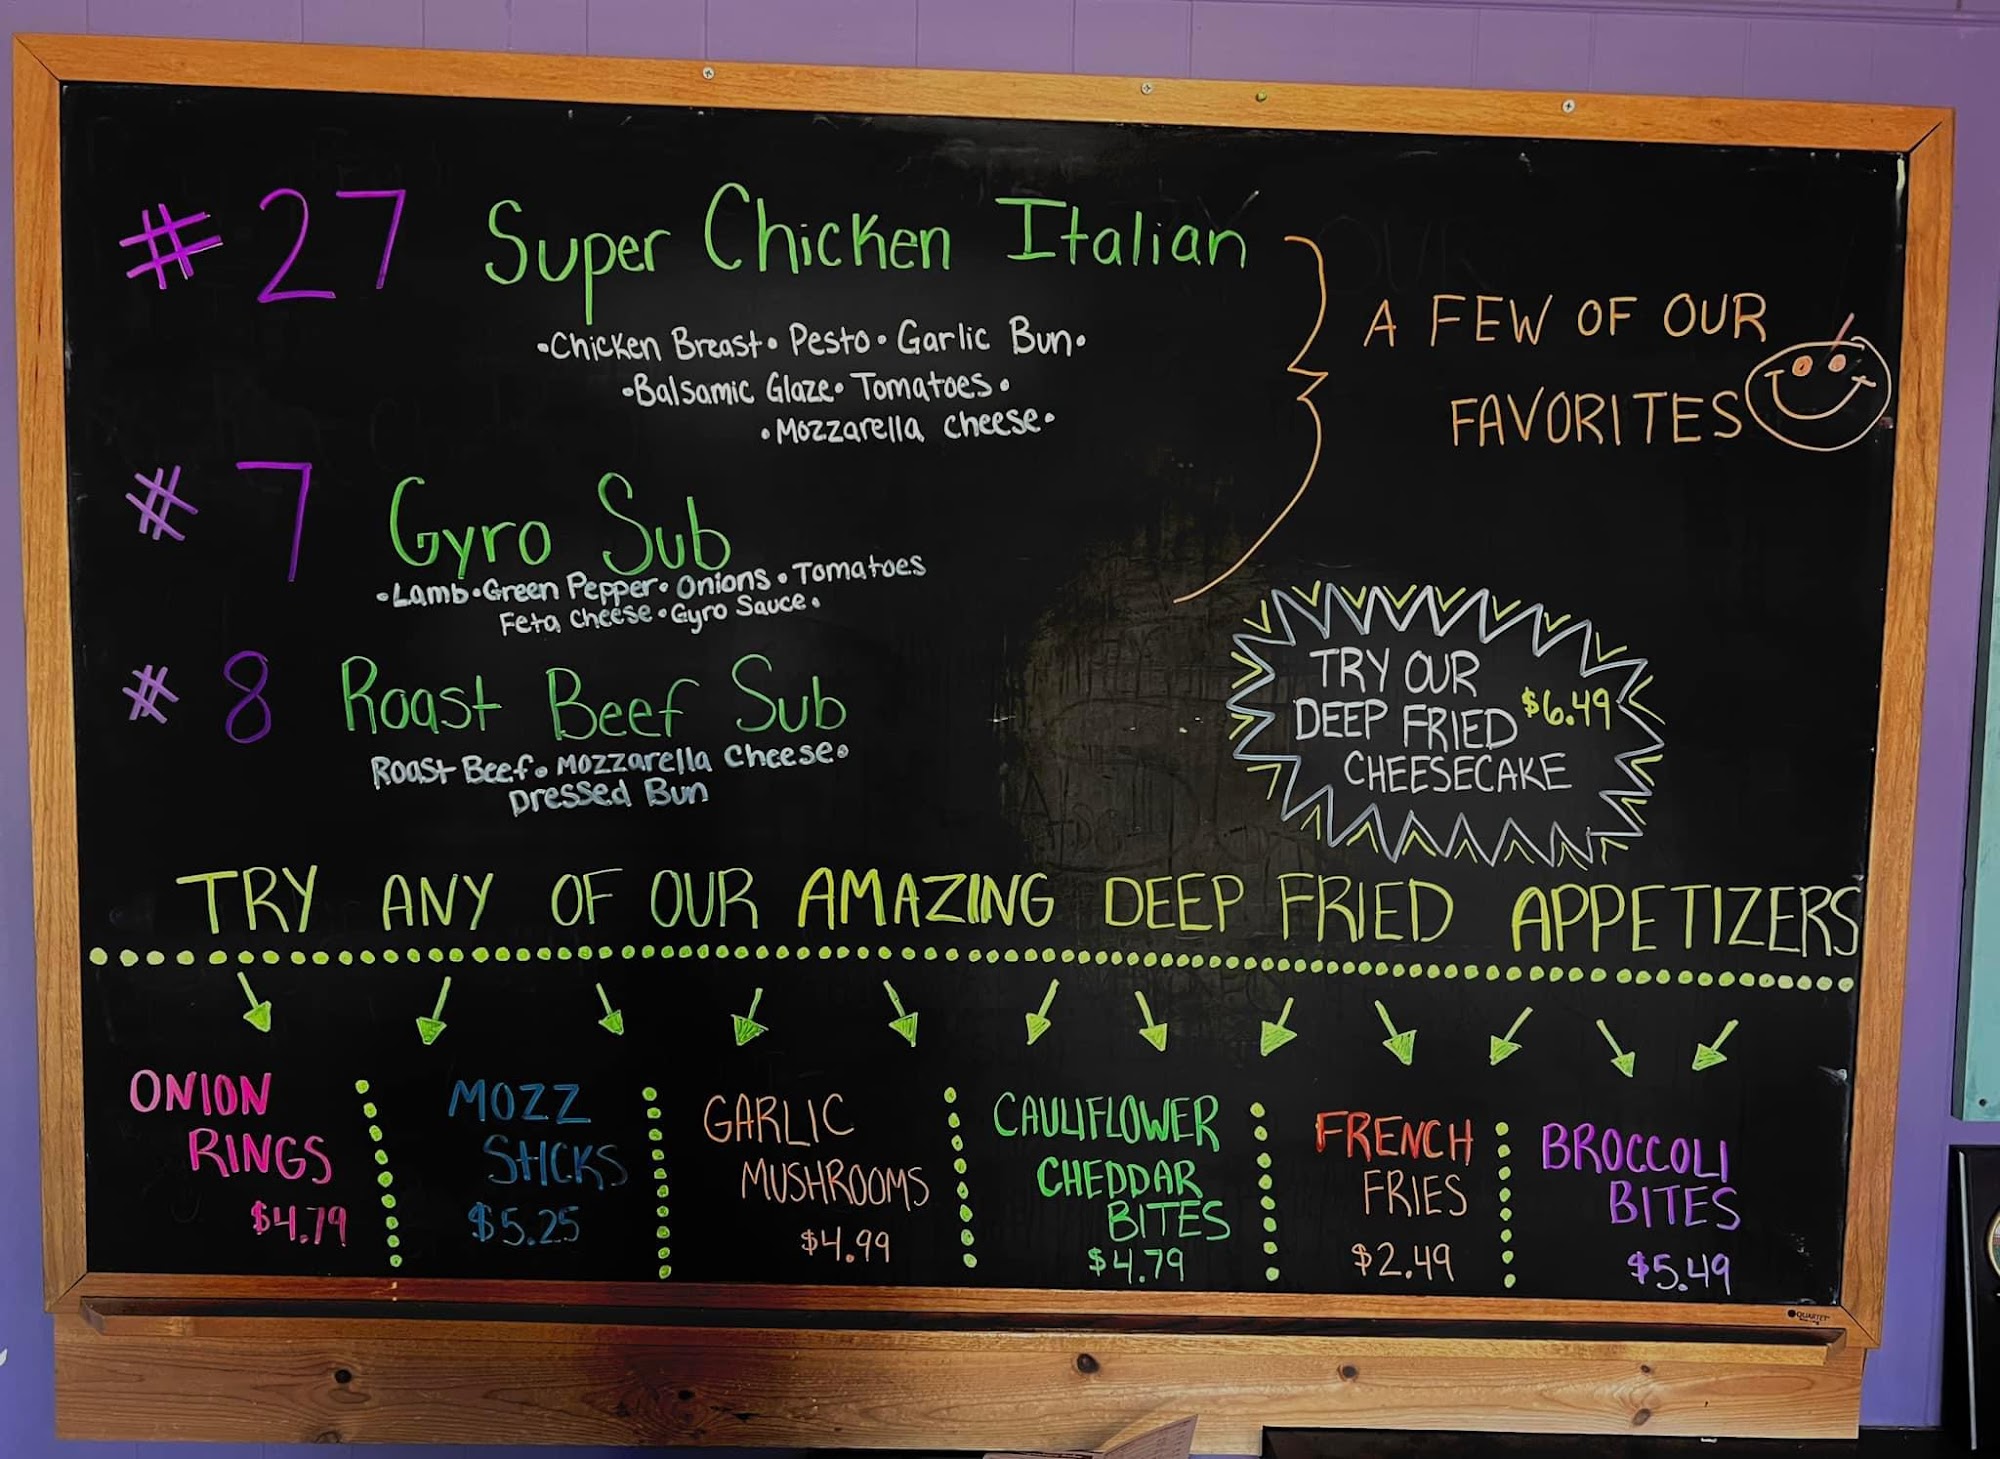 #27 Super Chicken Italian
•Chicken Breast• Pesto • Garlic Bun•
•Balsamic Glaze• Tomatoes •
•Mozzarella cheese•
A FEW OF OUR
FAVORITES
#7 Gyro Sub
•Lamb•Green Pepper• Onions • Tomatoes
Feta cheese•Gyro Sauce•
#8 Roast Beef Sub
Roast Beef• Mozzarella Cheese•
Dressed Bun
TRY OUR
DEEP FRIED $6.49
CHEESECAKE
TRY ANY OF OUR AMAZING DEEP FRIED APPETIZERS
ONION
RINGS
$4.79
MOZZ
STICKS
$5.25
GARLIC
MUSHROOMS
$4.99
CAULIFLOWER
CHEDDAR
BITES
$4.79
FRENCH
FRIES
$2.49
BROCCOLI
BITES
$5.49
QUARTET